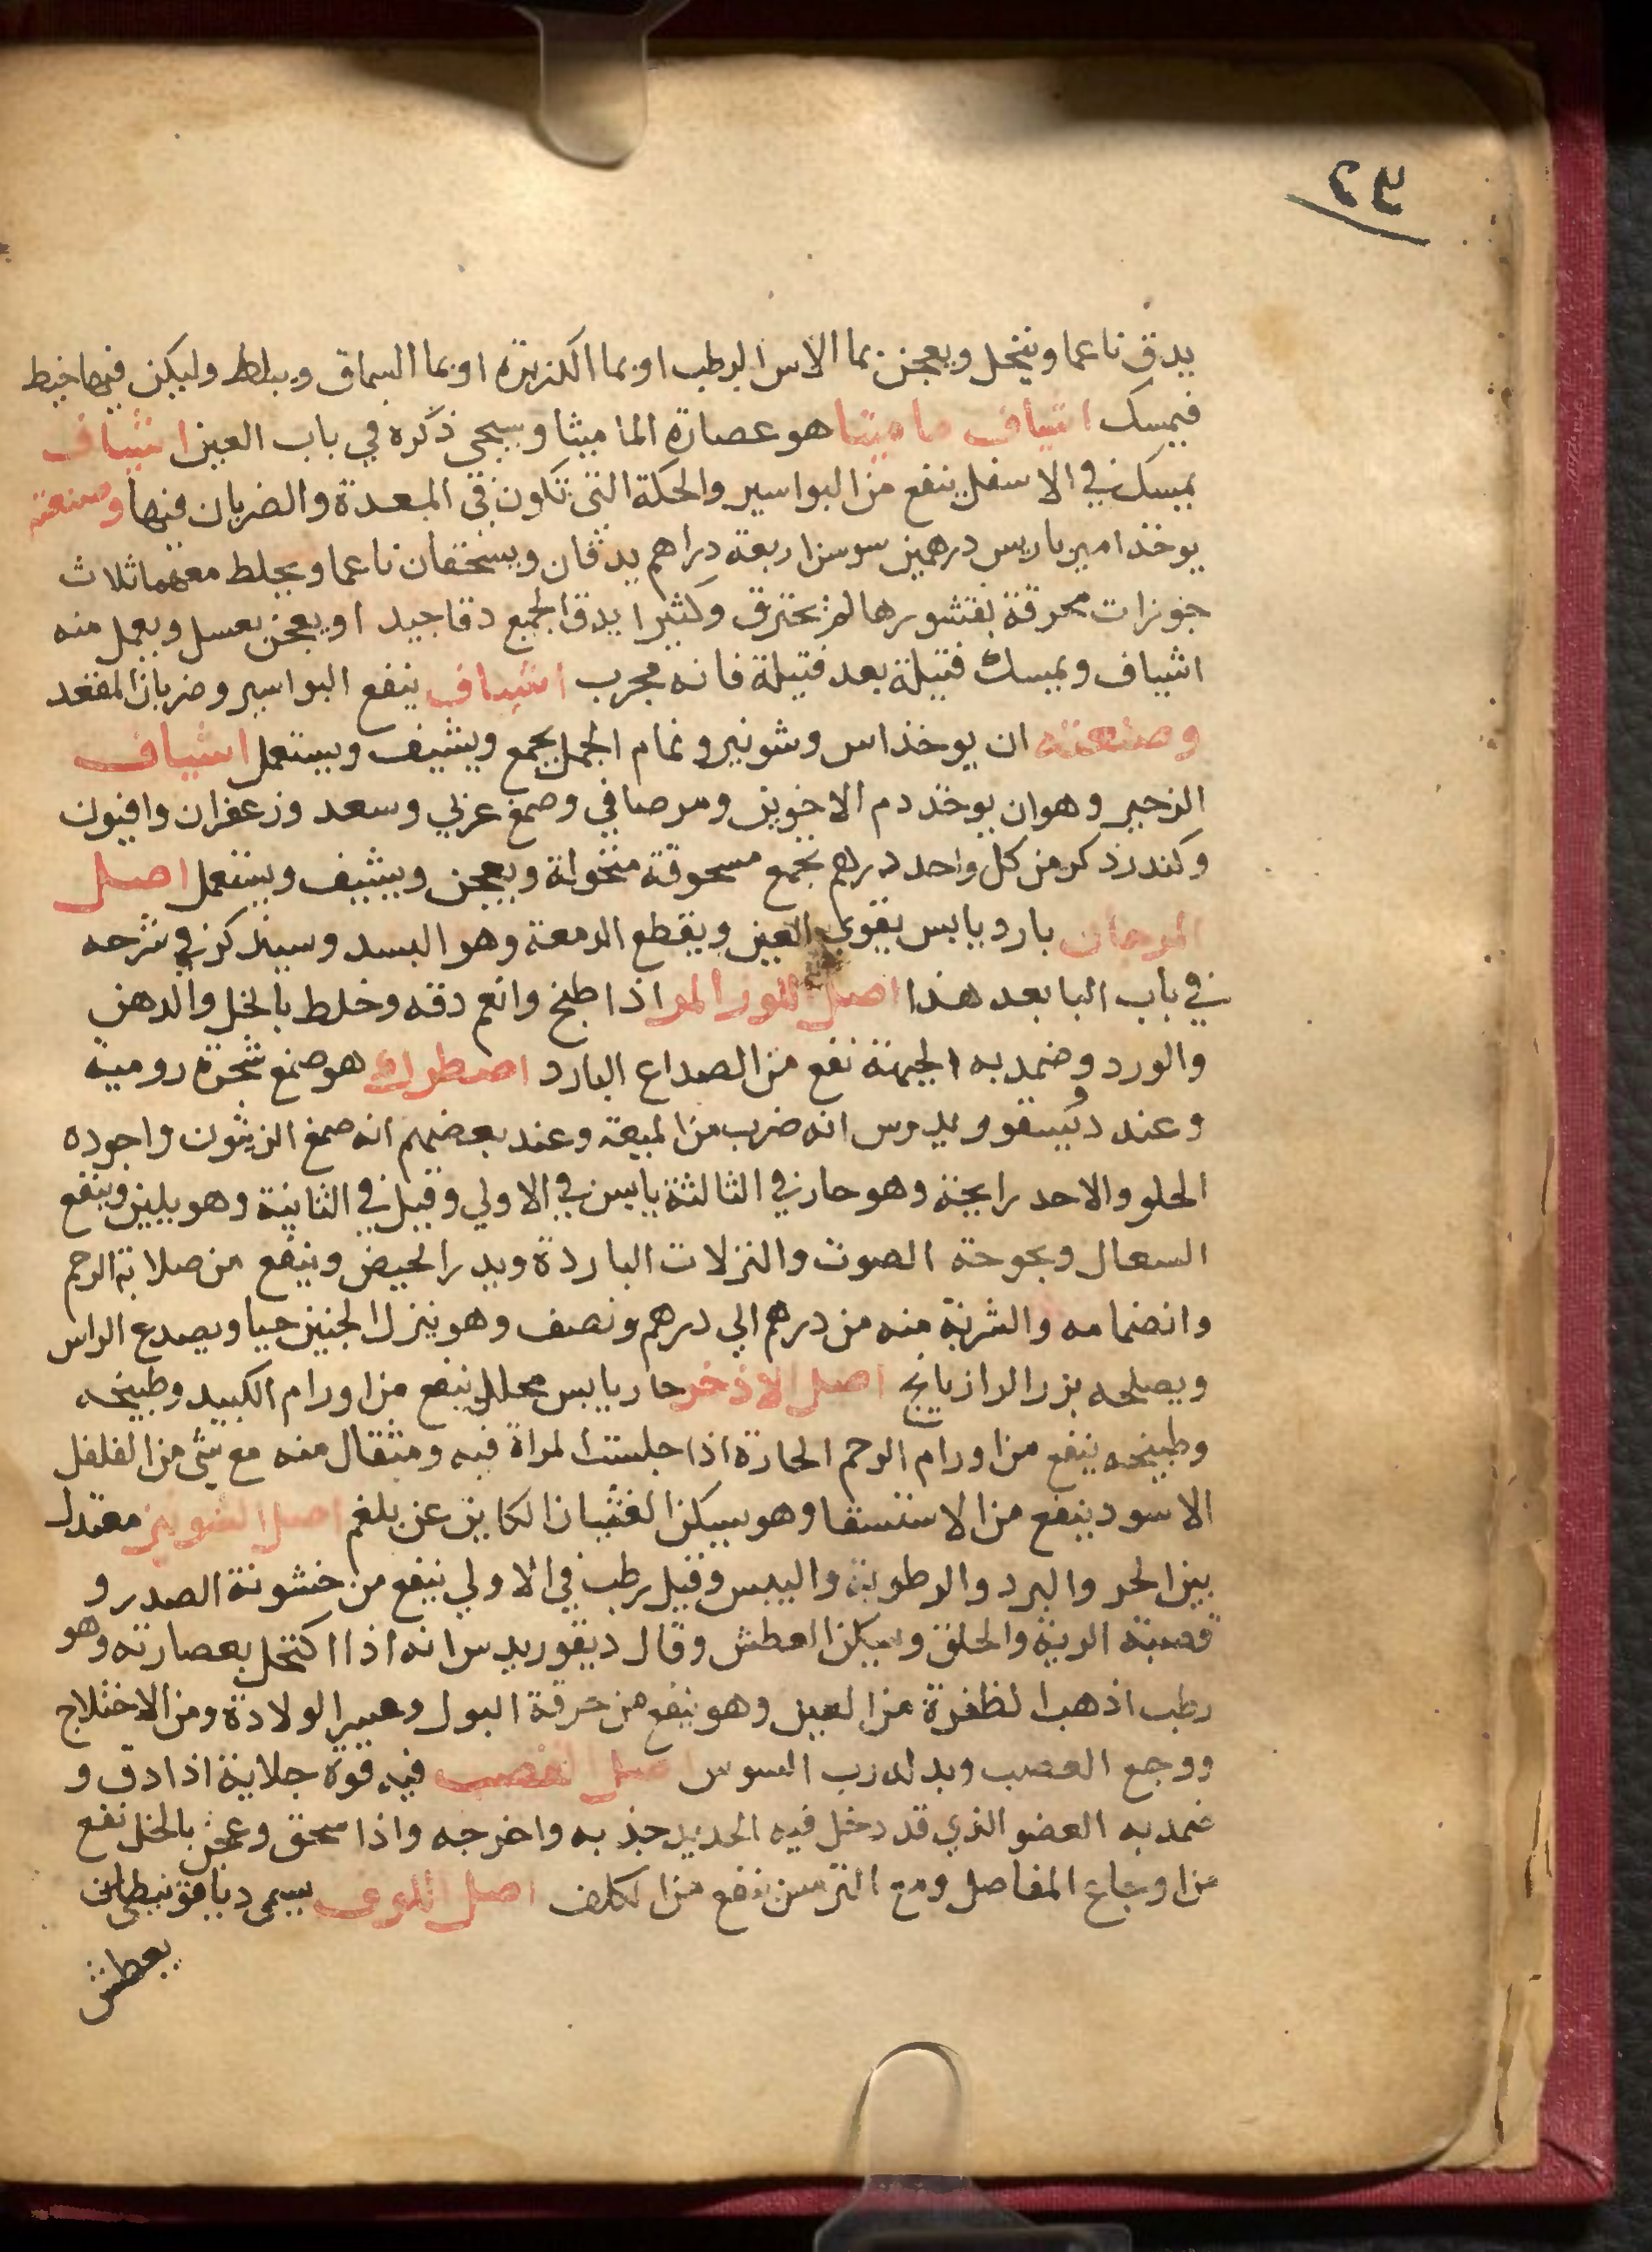 يدق ناعما وينخل ويعجن بما الاس الرطب او بما الكزبرة او بما السماق ويبلط وليكن فيها خيط
فيمسك اشياف ماميثا هو عصارة الماميثا وسيجي ذكره في باب العين اشياف
يمسك في الاسفل ينفع من البواسير والحكة التي تكون في المعدة والضربان فيها وصنعته
يوخذ امير باريس درهمين سوسن اربعة دراهم يدقان ويسحقان ناعما ويخلط معهما ثلاث
جوزات محرقة بقشورها لم تحترق وكثيرا يدق الجميع دقا جيدا ويعجن بعسل ويعمل منه
اشياف ويمسك فتيلة بعد فتيلة فانه مجرب اشياف ينفع البواسير وضربان المقعد
وصنعته ان يوخذ اس وشونيز وتمام الجمل يجمع ويشيف ويستعمل اشياف
الزحير وهو ان يوخذ دم الاخوين ومر صافي وصمغ عربي وسعد وزعفران وافيون
وكندر ذكر من كل واحد درهم تجمع مسحوقة منخولة ويعجن ويشيف ويستعمل اصل
المرجان بارد يابس يقوي العين ويقطع الدمعة وهو البسد وسيذكر في شرحه
في باب البا بعد هذا اصل اللوز المر اذا طبخ وانعم دقه وخلط بالخل والدهن
والورد وضمد به الجبهة نفع من الصداع البارد اصطرك هو صمغ شجرة رومية
وعند ديسقوريدوس انه ضرب من الميعة وعند بعضهم انه صمغ الزيتون واجوده
الحلو والاحد رايحة وهو حار في الثالثة يابس في الاولي وقيل في الثانية وهو يلين وينفع
السعال وبحوحة الصوت والنزلات الباردة ويدر الحيض وينفع من صلابة الرحم
وانضمامه والشربة منه من درهم الي درهم ونصف وهو ينزل الجنين حيا ويصدع الراس
ويصلحه بزر الرازيانج اصل الاذخر حار يابس محلل ينفع من اورام الكبد وطبيخه
وطبيخه ينفع من اورام الرحم الحارة اذا جلست المراة فيه ومثقال منه مع شي من الفلفل
الاسود ينفع من الاستسقا وهو يسكن الغثيان الكاين عن بلغم اصل السوس معتدل
بين الحر والبرد والرطوبة واليبس وقيل رطب في الاولي ينفع من خشونة الصدر و
قصبة الرية والحلق ويسكن العطش وقال ديقوريدس انه اذا اكتحل بعصارته وهو
رطب اذهب الظفرة من العين وهو ينفع من حرقة البول وعسر الولادة ومن الاختلاج
ووجع العصب وبدله رب السوس اصل القصب فيه قوة جلاية اذا دق و
ضمد به العضو الذي قد دخل فيه الحديد جذبه واخرجه واذا سحق وعجن بالخل نفع
من اوجاع المفاصل ومع الترمس نفع من الكلف اصل اللوف يسمي
يعطش